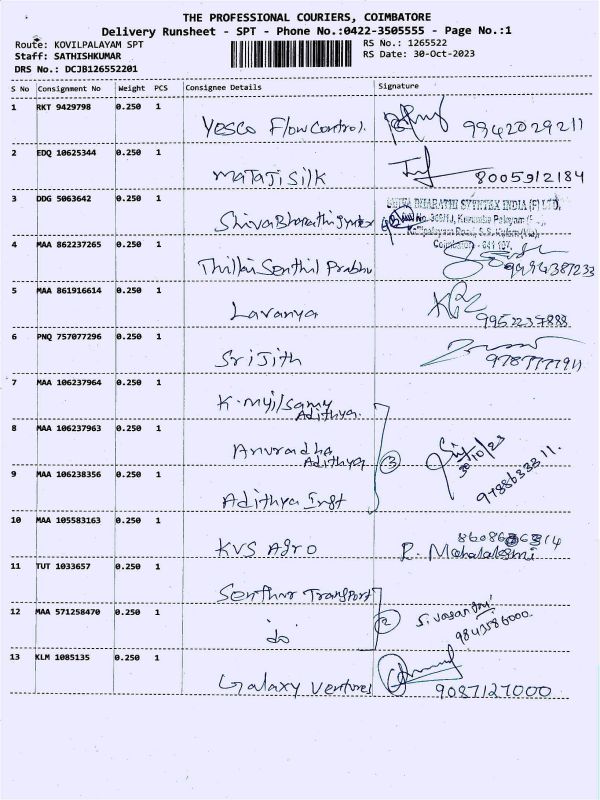 THE PROFESSIONAL COURIERS, COIMBATORE
Delivery Runsheet - SPT - Phone No.:0422-3505555 - Page No.:1
Route: KOVILPALAYAM SPT RS No.: 1265522
Staff: SATHISHKUMAR RS Date: 30-Oct-2023
DRS No.: DCJB126552201
S No Consignment No Weight PCS Consignee Details Signature
1 RKT 9429798 0.250 1
Yesco Flow Control. 9942029211
2 EDQ 10625344 0.250 1
MaTaJi Silk 8005912184
3 DDG 5063642 0.250 1
SHIVA BHARATHI SYNTEX INDIA (P) LTD,
Shiva Bharathi Syntex
Coimbatore - 641 107.
4 MAA 862237265 0.250 1
Thillai Senthil Prabhu 9994387233
5 MAA 861916614 0.250 1
Lavanya 9952237888
6 PNQ 757077296 0.250 1
SriJith
7 MAA 106237964 0.250 1
K. Myilsamy
Adithya.
8 MAA 106237963 0.250 1
Anuradha
Adithya 3 30/10/23
9 MAA 106238356 0.250 1
Adithya Inst
10 MAA 105583163 0.250 1
KVS Agro R. Mahalakshmi
11 TUT 1033657 0.250 1
Senthur Transport
12 MAA 571258470 0.250 1
do 2 9843586000
13 KLM 1085135 0.250 1
Galaxy Ventures 9087127000